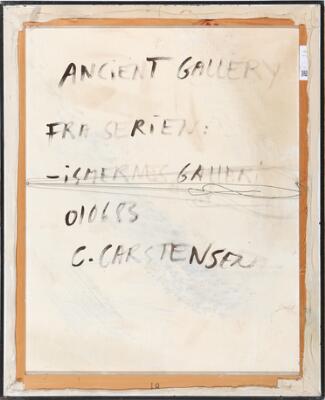 ANCIENT GALLERY
FRA SERIEN:
GALLERI
010683
C. CARSTENSEN
18